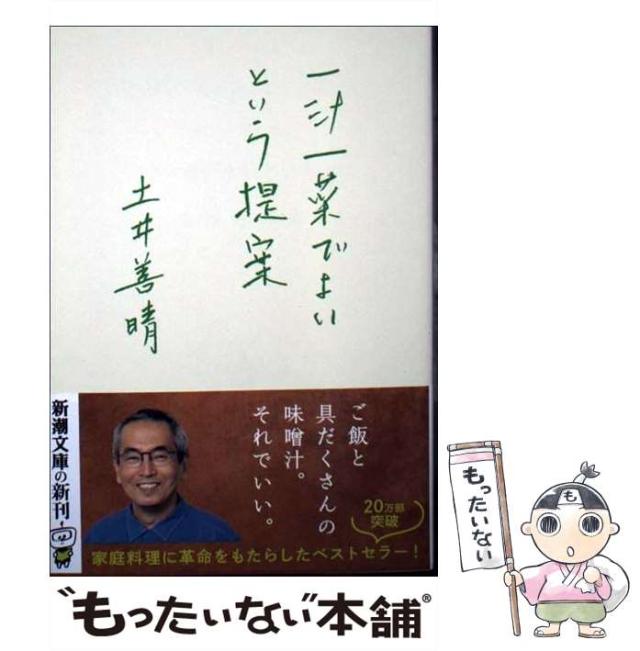 一汁一菜でよい
という提案
土井善晴
新潮文庫の新刊
ご飯と
具だくさんの
味噌汁。
それでいい。
20万部
突破
家庭料理に革命をもたらしたベストセラー!
もったいない
も
"もったいない"本舗®